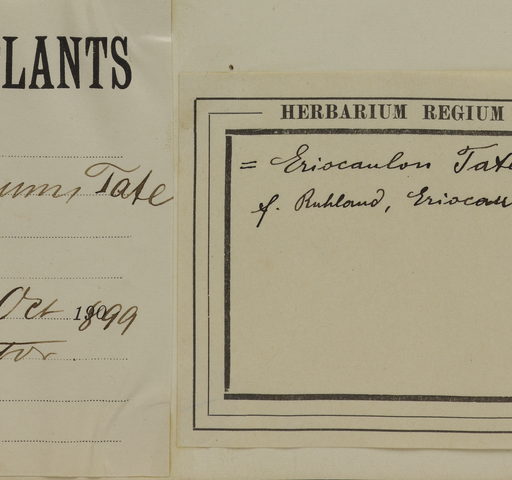 LANTS
Tate
Oct 1899
tor
HERBARIUM REGIUM
= Eriocaulon Tate
f. Ruhland, Eriocau